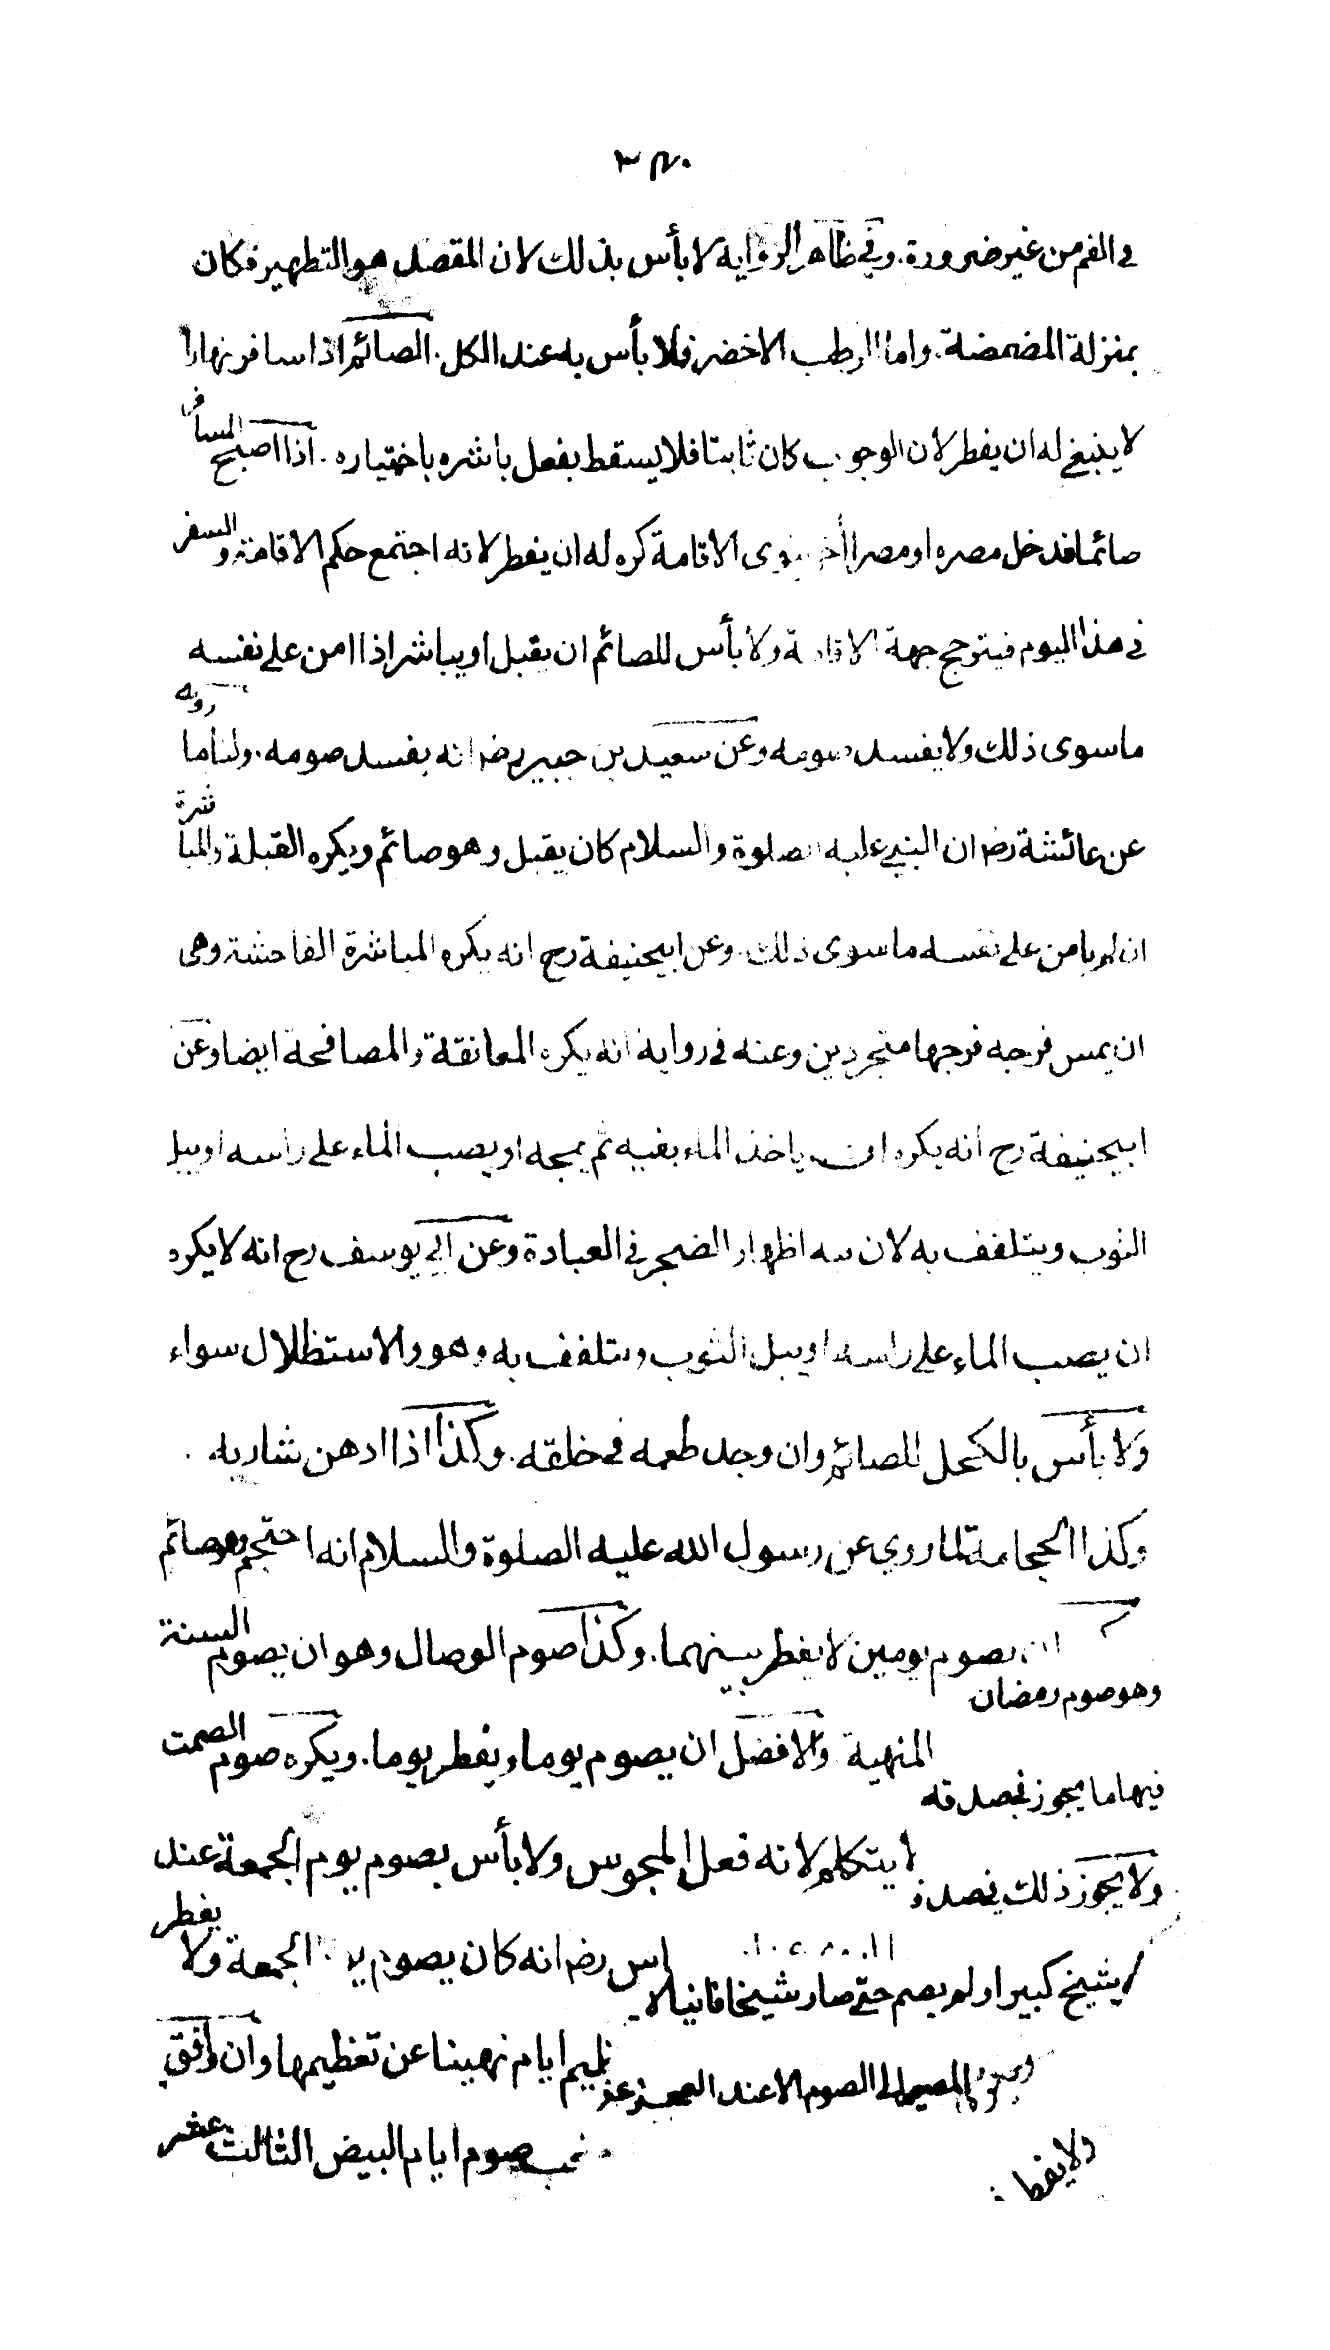 ٣٤٠
في الفم من غير ضرورة. وفي ظاهر الرواية لا بأس بذلك لان المقصد هو التطهير فكان
بمنزلة المضمضة. واما الرطب الاخضر فلا بأس به عند الكل. الصائم اذا سافر نهارا
لا ينبغي له ان يفطر لان الوجوب كان ثابتا فلا يسقط بفعل باشره باختياره. اذا اصبح المسافر
صائما فدخل مصره او مصرا أخر ينوى الاقامة كره له ان يفطر لانه اجتمع حكم الاقامة والسفر
في هذا اليوم فيترجح جهة الاقامة ولا بأس للصائم ان يقبل او يباشر اذا امن على نفسه
ما سوى ذلك ولا يفسد صومه وعن سعيد بن جبير رضـ انه يفسد صومه. ولنا ما رويه
عن عائشة رضـ ان النبي عليه الصلوة والسلام كان يقبل وهو صائم ويكره القبلة والمباشرة
ان لم يامن على نفسه ما سوى ذلك. وعن ابيحنيفة رح انه يكره المباشرة الفاحشة وهى
ان يمس فرجه فرجها متجردين وعنه في رواية انه يكره المعانقة والمصافحة ايضا وعن
ابيحنيفة رح انه يكره ان ياخذ الماء بفيه ثم يمجه او يصب الماء على راسه او يبل
الثوب ويتلفف به لان فيه اظهار الضجر في العبادة وعن ابي يوسف رح انه لا يكره
ان يصب الماء على راسه او يبل الثوب ويتلفف به وهو والاستظلال سواء
ولا بأس بالكحل للصائم وان وجد طعمه في خلقه. وكذا اذا ادهن شاربه.
وكذا الحجامة لما روي عن رسول الله عليه الصلوة والسلام انه احتجم وهو صائم
ان يصوم يومين لا يفطر بينهما. وكذا صوم الوصال وهو ان يصوم السنة
وهو صوم رمضان
المنهية والافضل ان يصوم يوما ويفطر يوما. ويكره صوم الصمت
فيها ما يجوز فصدقه
لا يتكلم لانه فعل المجوس ولا بأس بصوم يوم الجمعة عند
ولا يجوز ذلك في صدقه
رضـ انه كان يصوم يوم الجمعة ولا يفطر
شيخ كبير او لم يصم حتى صار شيخا فانيا لا
ايام نهينا عن تعظيمها وان وافق
المصير الى الصوم الا عند العجز عن
صوم ايام البيض الثالث عشر
ولا يفطر